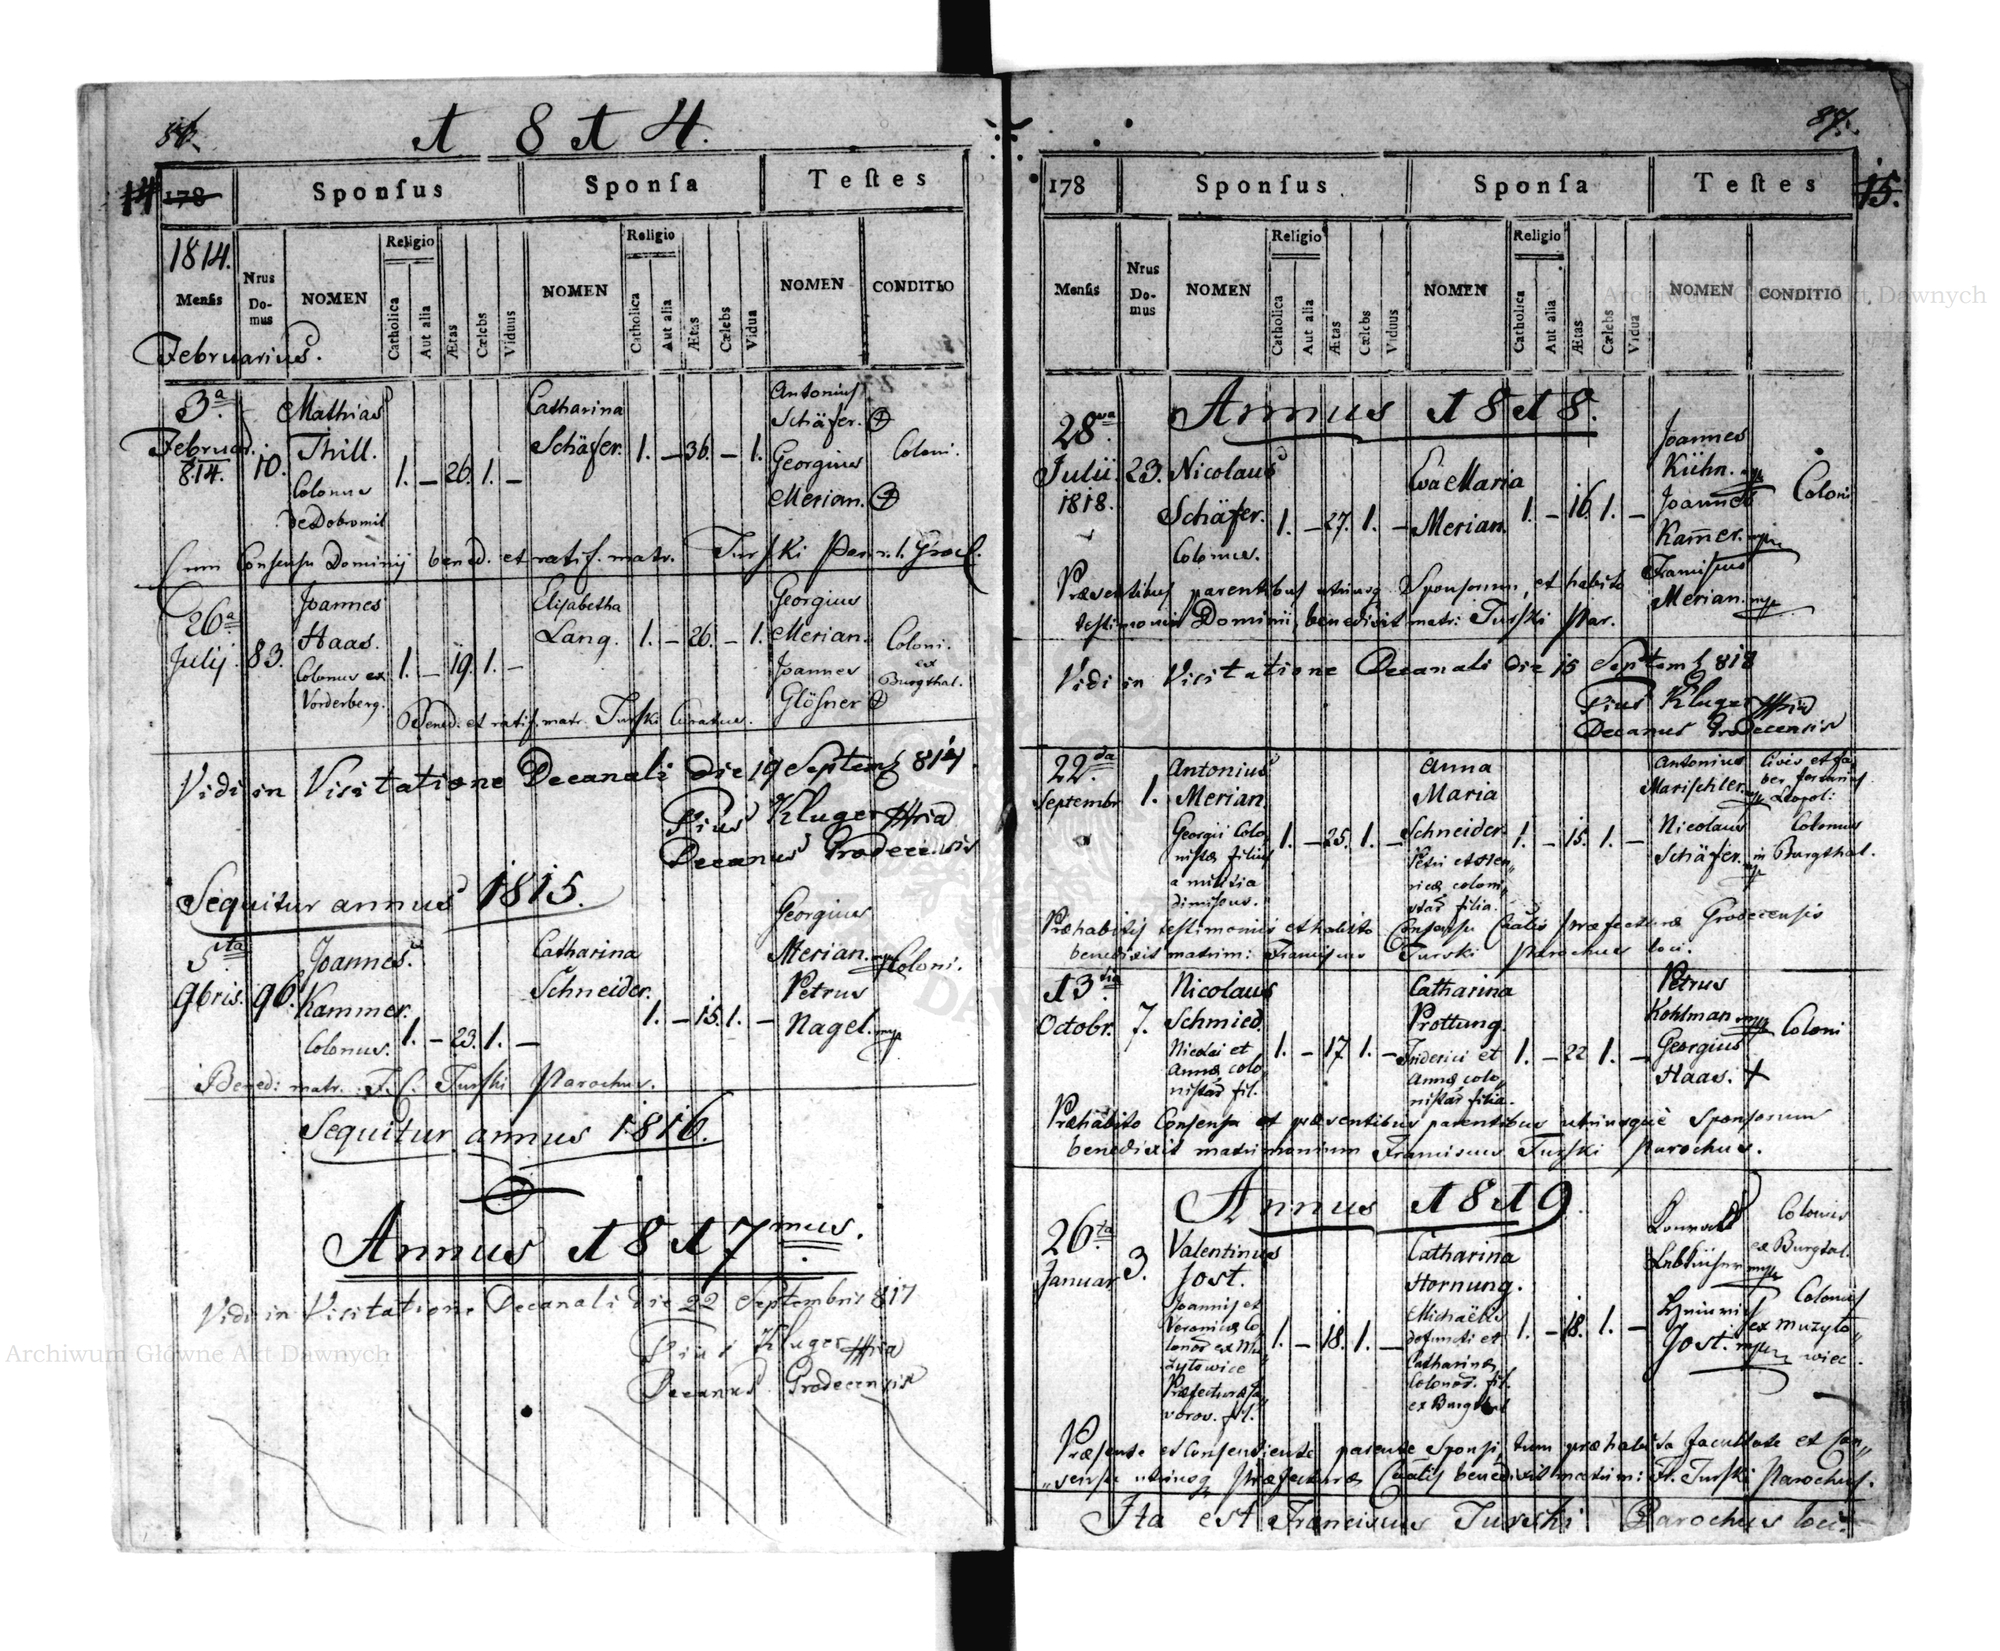 86.
1 8 1 4.
14 178
Sponſus
Sponſa
Teſtes
1814.
Menſis
Nrus Do-mus
NOMEN
Religio
Catholica
Aut alia
Ætas
Cælebs
Viduus
NOMEN
Religio
Catholica
Aut alia
Ætas
Cælebs
Vidua
NOMEN
CONDITIO
Februarius.
3a Februar. 814.
10.
Mathias
Thill.
Colonus
de Dobromil
1. – 26. 1. –
Catharina
Schäfer.
1. – 36. – 1.
Antonius
Schäfer.
Georgius
Merian.
Coloni.
Cum Consensu Dominij bened. et ratif. matr. Turski Par.
26a
Julij.
83.
Joannes
Haas.
Colonus ex
Vorderberg.
1. – 19. 1. –
Elisabetha
Lang.
1. – 26. – 1.
Georgius
Merian.
Joannes
Glösner
Coloni.
ex
Burgthal.
Bened. et ratif. matr. Turski Curatus.
Vidi in Visitatione Decanali die 19 Septemb 814
Pius Kluger
Decanus Grodecensis
Sequitur annus 1815.
5ta
9bris.
96.
Joannes
Kammer.
Colonus.
1. – 23. 1. –
Catharina
Schneider.
1. – 15. 1. –
Georgius
Merian. mp
Petrus
Nagel. mp
Coloni.
Bened: matr. F. C. Turski Parochus.
Sequitur annus 1816.
Annus 1817mus.
Vidi in Visitatione Decanali die 22 Septembris 817
Pius Kluger
Decanus Grodecensis
Archiwum Główne Akt Dawnych
87.
178
Sponſus
Sponſa
Teſtes
15.
Menſis
Nrus Do-mus
NOMEN
Religio
Catholica
Aut alia
Ætas
Cælebs
Viduus
NOMEN
Religio
Catholica
Aut alia
Ætas
Cælebs
Vidua
NOMEN
CONDITIO
Archiwum Główne Akt Dawnych
Annus 1818.
28va
Julii
1818.
23.
Nicolaus
Schäfer.
Colonus.
1. – 27. 1. –
Eva Maria
Merian.
1. – 16. 1. –
Joannes
Kühn. mp
Joannes
Kam̄er. mp
Franciscus
Merian. mp
Coloni
Præsentibus parentibus utrinq Sponsorum, et habito
testimonio Dominii, benedixit matr: Turski Par.
Vidi in Visitatione Decanali die 15 Septemb 818
Pius Kluger
Decanus Grodecensis
22da
Septembr
1.
Antonius
Merian.
Georgii Colo
nistæ filius
a militia
dimissus.
1. – 25. 1. –
Anna
Maria
Schneider.
Petri et Hen„
ricæ coloni„
star filia.
1. – 15. 1. –
Antonius
Marischler. mp
Nicolaus
Schäfer. mp
Civis et fa
ber ferrarius
Leopol:
Colonus
in Burgthal.
Præhabitis testimoniis et habito Consensu Cralis Præfecturæ Grodecensis
benedixit matrim: Franciscus Turski Parochus loci.
13tia
Octobr.
7.
Nicolaus
Schmied.
Nicolai et
Annæ colo„
nistar fil.
1. – 17. 1. –
Catharina
Prottung.
Friderici et
Annæ colo„
nistar filia.
1. – 22 1. –
Petrus
Kohlman mp
Georgius
Haas. +
Coloni
Præhabito Consensu et præsentibus parentibus utriusque Sponsorum
benedixit matrimonium Franciscus Turski Parochus.
Annus 1819
26ta
Januar
3.
Valentinus
Jost.
Joannis et
Veronicæ Co
lonor ex Mu
żyłowice
Præfecturæ Ja„
vorov. fil.
1. – 18. 1. –
Catharina
Hornung.
Michaëlis
defuncti et
Catharinæ
Colonor. fil.
ex Burgthal
1. – 18. 1. –
Konrad
mp
Heinrich
Jost. mp
Colonus
ex Burgtal.
Colonus
ex Muzyło„
wiec.
Præsente et Consentiente parente Sponsi, tum præhabita facultate et Con„
„sensu utriusq Præfecturæ Cralis benedixit matrim: Fr. Turski Parochus.
Ita est Franciscus Turski Parochus loci.